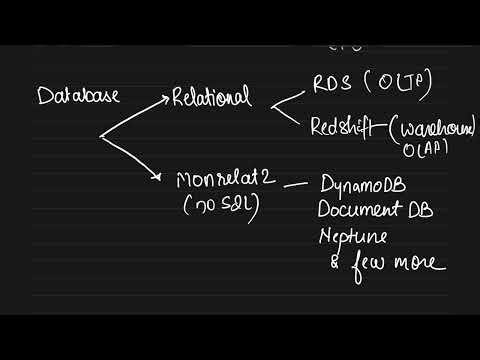 Database
Relational
RDS (OLTP)
Redshift (Warehouse)
OLAP)
(no SQL)
DynamoDB
Document DB
Neptune
& few more